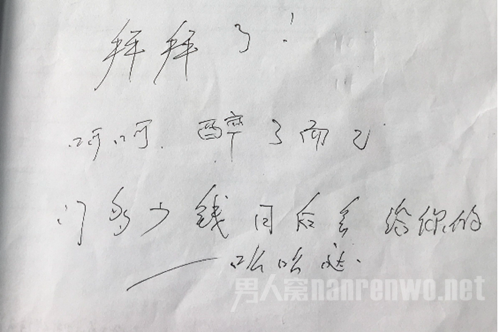 拜拜了!
呵呵.醉了而已
门多少钱日后会给你的
——哈哈哒.
男人窝nanrenwo.net